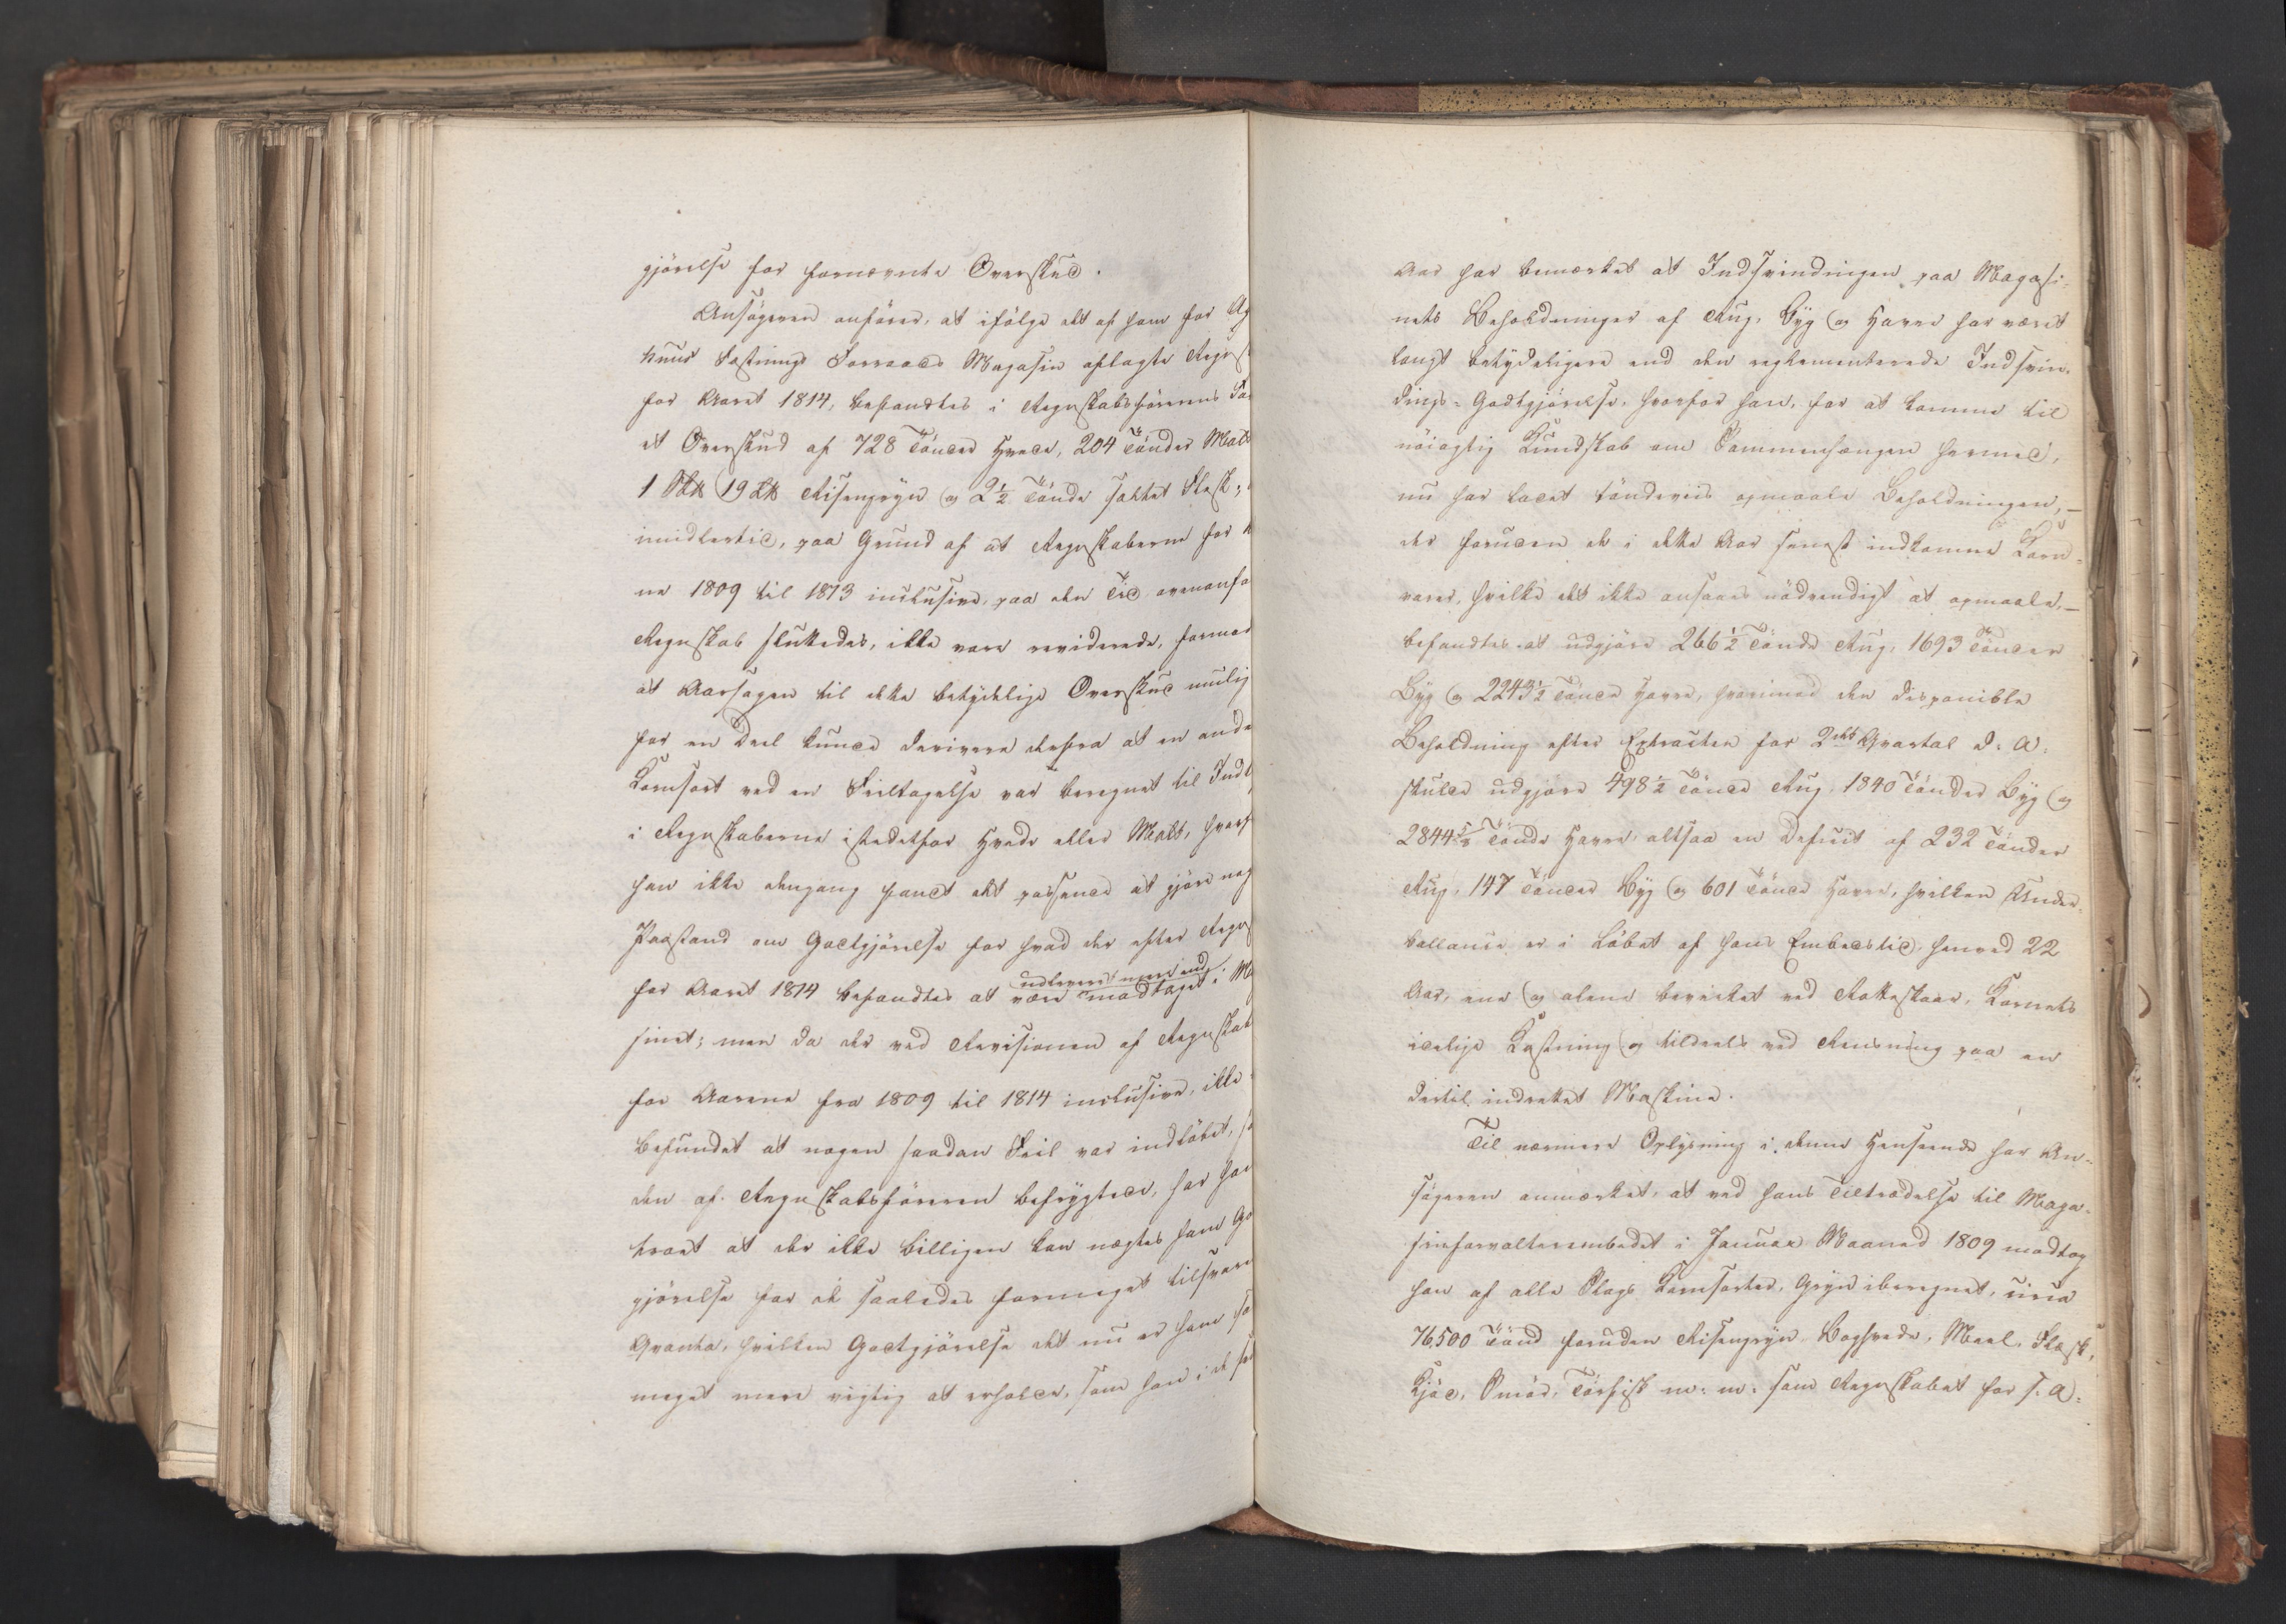 gjörelse for fornævnte Overskud.
Ansøgeren anfører, at ifølge det af ham for Ag
huus Fæstnings Forraads Magasin aflagte Regns
for Aaret 1814, befandtes i Regnskabsførerens Fa
et Overskud af 728 Tönder Hvede, 204 Tönder Malt
1 Sk 19 Lk Risengryn og 2½ Tönde saltet Flesk;
imidlertid, paa Grund af at Regnskaberne for A
ne 1809 til 1813 inclusive, paa den Tid ovenanfø
Regnskab sluttedes, ikke vare reviderede, formod
at Aarsagen til dette betydelige Overskud mulig
for en Deel kunde derivere derfra at en ande
Kornsort ved en Feiltagelse var beregnet til Indt
i Regnskaberne istedetfor Hvede eller Malt, hvorf
han ikke dengang fandt det passende at gjøre nog
Paastand om Godtgjörelse for hvad der efter Regns
for Aaret 1814 befandtes at være udleveret mere end modtaget i Ma
sinet; men da der ved Revisionen af Regnskab
for Aarene fra 1809 til 1814 inclusive, ikke
befundet at nogen saadan Feil var indløbet, so
den af Regnskabsføreren befrygtede, har han
troet at der ikke billigen kan nægtes ham Go
gjörelse for det saaledes formeget tilsvare
Qvanta, hvilken Godtgjörelse det nu er ham sa
meget mere vigtig at erholde, som han i de sid
Aar har bemærket at Indsvindingen paa Magasi-
nets Beholdninger af Rug, Byg og Havre har været
langt betydeligere end den reglementerede Indsvin-
dings-Godtgjörelse, hvorfor han, for at komme til
nøiagtig Kundskab om Sammenhængen hermed,
nu har ladet töndeviis opmaale Beholdningen, —
der foruden de i dette Aar senest indkomne Korn-
varer, hvilke det ikke ansaaes nödvendigt at opmaale, —
befandtes at udgjøre 266½ Tönde Rug, 1693 Tönder
Byg og 2243½ Tönde Havre, hvorimod den disponible
Beholdning efter Extracten for 2det Qvartal d: A:
skulde udgjøre 498½ Tönde Rug, 1840 Tönder Byg og
2844⅝ Tönde Havre, altsaa en Deficit af 232 Tönder
Rug, 147 Tönder Byg og 601 Tönde Havre, hvilken Under-
ballance er i Løbet af hans Embedstid, henved 22
Aar, ene og alene bevirket ved Rotteskade, Kornets
idelige Kastning og tildeels ved Rensning paa en
dertil indrettet Maskine.
Til nærmere Oplysning i denne Henseende har An-
søgeren anmærket, at ved hans Tiltrædelse til Maga-
sinforvalterembedet i Januar Maaned 1809 modtog
han af alle Slags Kornsorter, Gryn iberegnet, circa
76,500 Tönd foruden Risengryn, Boghvede, Meel, Flesk,
Kjød, Smör, Törfisk m: m: som Regnskabet for s: A: